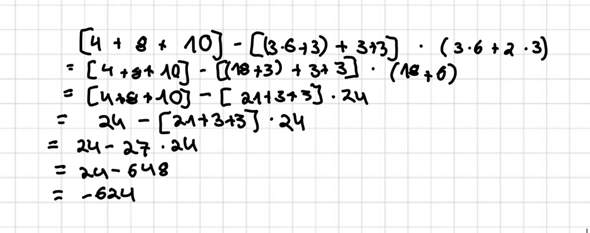 [4 + 8 + 10] - [(3·6+3) + 3+3] · (3·6+2·3)
= [4+8+10] - [(18+3) + 3+3] · (18+6)
= [4+8+10] - [21+3+3] · 24
= 24 - [21+3+3] · 24
= 24 - 27 · 24
= 24 - 648
= -624